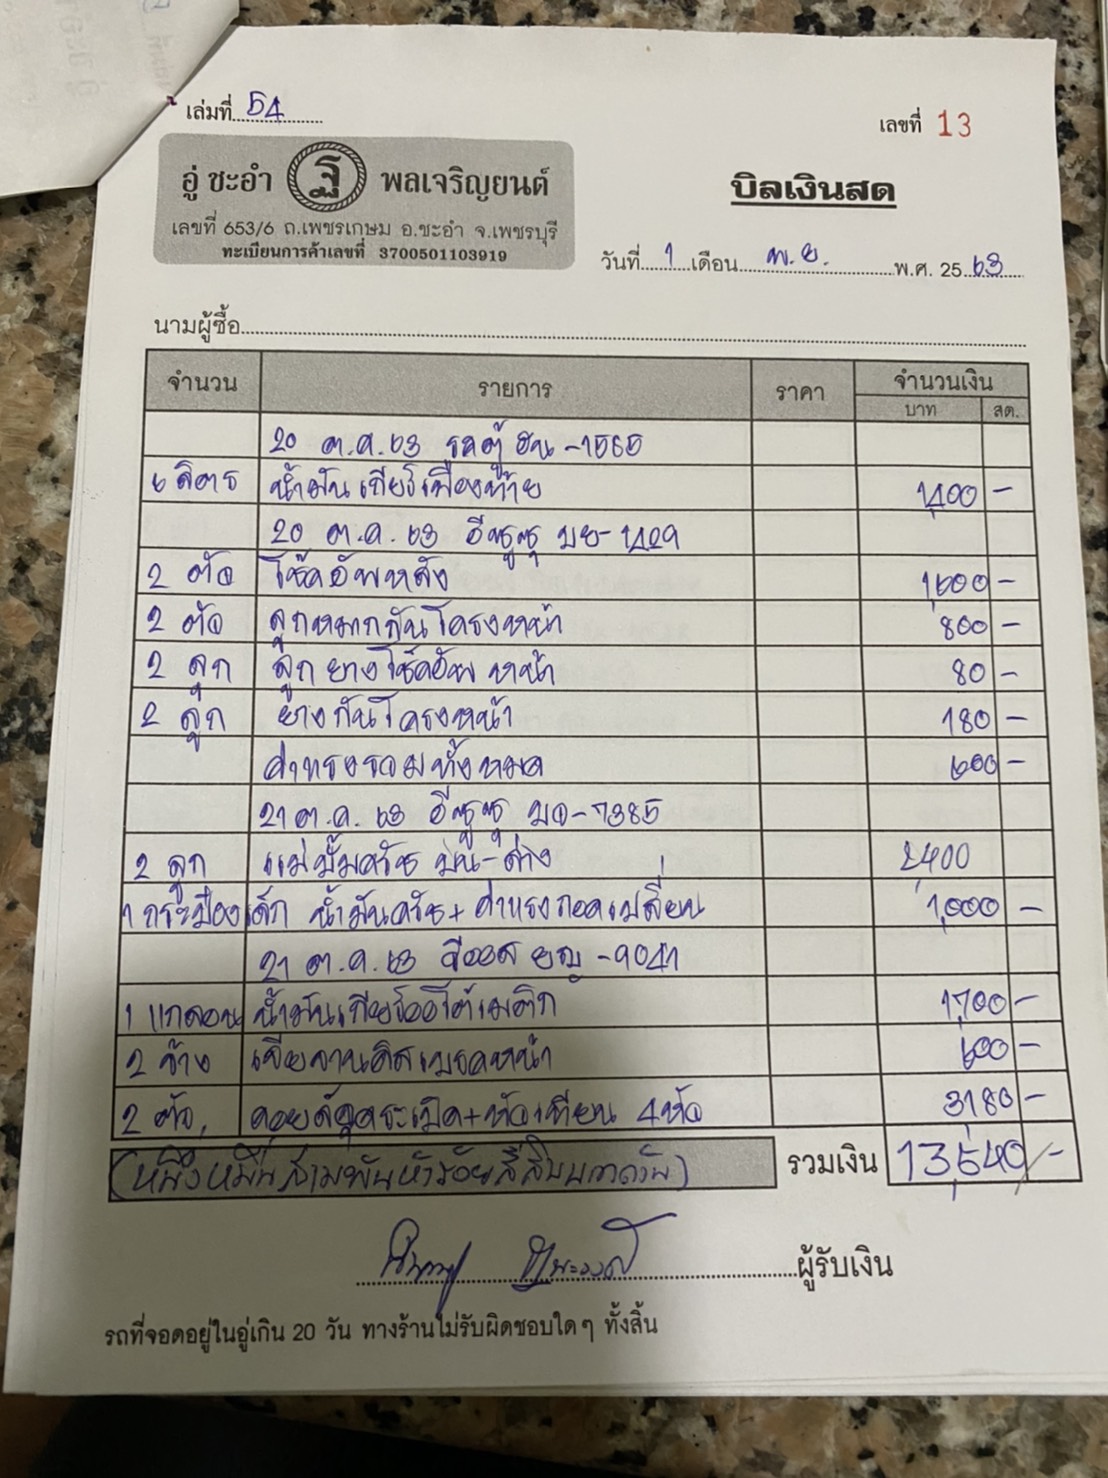 เล่มที่ 54
เลขที่ 13
อู่ ชะอำ ฐ พลเจริญยนต์
เลขที่ 653/6 ถ.เพชรเกษม อ.ชะอำ จ.เพชรบุรี
ทะเบียนการค้าเลขที่ 3700501103919
บิลเงินสด
วันที่ 1 เดือน พ.ย. พ.ศ. 25 63
นามผู้ซื้อ
จำนวน รายการ ราคา จำนวนเงิน
บาท สต.
20 ต.ค. 63 รถตู้ ฮน-1565
6 ลิตร น้ำมันเกียร์เฟืองท้าย 1,400 -
20 ต.ค. 63 อีซูซุ บย-1429
2 ตัว โช๊คอัพหลัง 1,600 -
2 ตัว ลูกหมากกันโครงหน้า 800 -
2 ลูก ลูกยางโช๊คอัพ หน้า 80 -
2 ลูก ยางกันโครงหน้า 180 -
ค่าแรงรวมทั้งหมด 600 -
21 ต.ค. 63 อีซูซุ บฉ-7385
2 ลูก แม่ปั๊มครัช บน-ล่าง 2,400
1 กระป๋องเล็ก น้ำมันครัช + ค่าแรงถอดเปลี่ยน 1,000 -
21 ต.ค. 63 วีออส ยญ-9041
1 แกลอน น้ำมันเกียร์ออโต้เมติก 1,700 -
2 ข้าง เจียจานดิสเบรคหน้า 600 -
2 ตัว คอยล์จุดระเบิด+หัวเทียน 4หัว 3,180 -
(หนึ่งหมื่นสามพันห้าร้อยสี่สิบบาทถ้วน) รวมเงิน 13,540 -
ผู้รับเงิน
รถที่จอดอยู่ในอู่เกิน 20 วัน ทางร้านไม่รับผิดชอบใดๆ ทั้งสิ้น